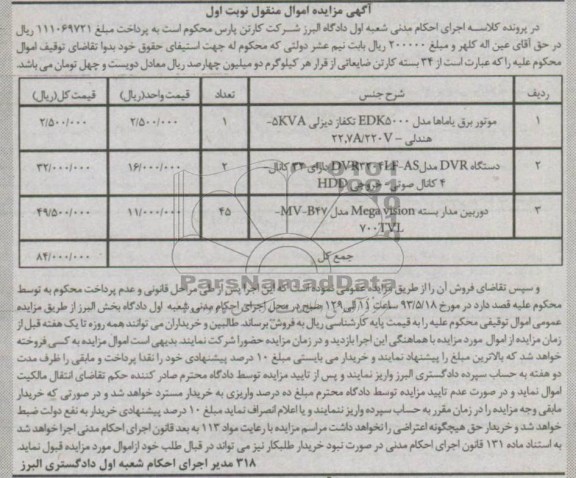 آگهی مزایده اموال منقول نوبت اول
در پرونده کلاسه اجرای احکام مدنی شعبه اول دادگاه البرز شرکت کارتن پارس محکوم است به پرداخت مبلغ ۱۱۱۰۶۹۷۳۱ ریال
در حق آقای عین اله کلهر و مبلغ ۲۰۰۰۰۰ ریال بابت نیم عشر دولتی که محکوم له جهت استیفای حقوق خود بدوا تقاضای توقیف اموال
محکوم علیه را که عبارت است از ۳۴ بسته کارتن ضایعاتی از قرار هر کیلوگرم دو میلیون چهارصد ریال معادل دویست و چهل تومان می باشد.
ردیف شرح جنس تعداد قیمت واحد(ریال) قیمت کل(ریال)
۱ موتور برق یاماها مدل EDK۵۰۰۰ تکفاز دیزلی ۵KVA- ۱ ۲/۵۰۰/۰۰۰ ۲/۵۰۰/۰۰۰
هندلی – ۲۲.۷A/۲۲۰V
۲ دستگاه DVR مدل دارای ۳۲ کانال – ۲ ۱۶/۰۰۰/۰۰۰ ۳۲/۰۰۰/۰۰۰
۴ کانال صوتی- خروجی HDD
۳ دوربین مدار بسته Mega vision مدل MV-B۴۷- ۴۵ ۱۱/۰۰۰/۰۰۰ ۴۹/۵۰۰/۰۰۰
۷۰۰TVL
جمع کل ۸۴/۰۰۰/۰۰۰
ParsNamadData
و سپس تقاضای فروش آن را از طریق مزایده این اجرا پس از طی مراحل قانونی و عدم پرداخت محکوم به توسط
محکوم علیه قصد دارد در مورخ ۹۳/۵/۱۸ ساعت ۱۱ الی ۱۲ صبح در محل اجرای احکام مدنی شعبه اول دادگاه بخش البرز از طریق مزایده
عمومی اموال توقیفی محکوم علیه را به قیمت پایه کارشناسی ریال به فروش برساند. طالبین و خریداران می توانند همه روزه تا یک هفته قبل از
زمان مزایده از اموال مورد مزایده با هماهنگی این اجرا بازدید و در زمان مزایده حضورا شرکت نمایند. بدیهی است اموال مزایده به کسی فروخته
خواهد شد که بالاترین مبلغ را پیشنهاد نمایند و خریدار می بایستی مبلغ ۱۰ درصد پیشنهادی خود را نقدا پرداخت و مابقی را ظرف مدت
دو هفته به حساب سپرده دادگستری البرز واریز نمایند و پس از تایید مزایده توسط دادگاه محترم صادر کننده حکم تقاضای انتقال مالکیت
اموال نماید و در صورت عدم تایید مزایده توسط دادگاه محترم مبلغ ده درصد واریزی به خریدار مسترد خواهد شد و در صورتی که خریدار
مابقی وجه مزایده را در زمان مقرر به حساب سپرده واریز ننمایند و یا اعلام انصراف نماید مبلغ ۱۰ درصد پیشنهادی خریدار به نفع دولت ضبط
خواهد شد و خریدار حق هیچگونه اعتراضی را نخواهد داشت مراسم مزایده با رعایت مواد ۱۱۳ به بعد قانون اجرای احکام مدنی اجرا خواهد شد
به استناد ماده ۱۳۱ قانون اجرای احکام مدنی در صورت نبود خریدار طلبکار نیز می تواند در قبال طلب خود از اموال مورد مزایده قبول نماید.
۳۱۸ مدیر اجرای احکام شعبه اول دادگستری البرز